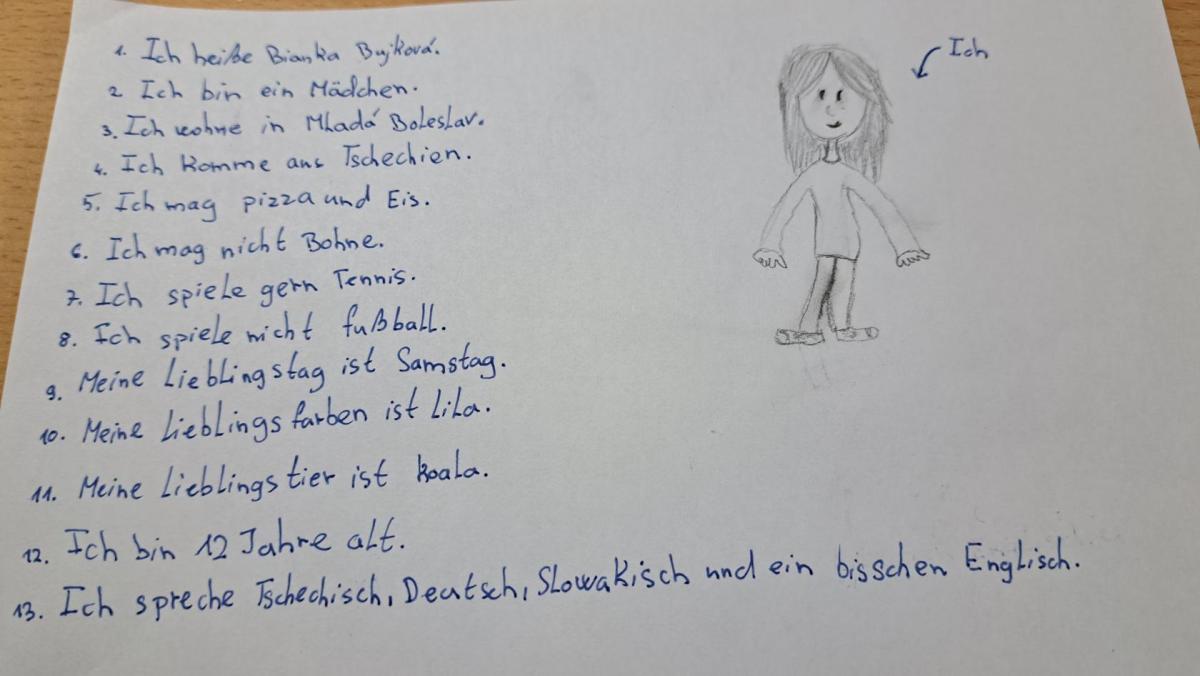 1. Ich heiße Bianka Bujková.
Ich
2 Ich bin ein Mädchen.
3. Ich wohne in Mladá Boleslav.
4. Ich komme aus Tschechien.
5. Ich mag pizza und Eis.
6. Ich mag nicht Bohne.
7. Ich spiele gern Tennis.
8. Ich spiele nicht fußball.
9. Meine Lieblingstag ist Samstag.
10. Meine Lieblingsfarben ist Lila.
11. Meine Lieblingstier ist koala.
12. Ich bin 12 Jahre alt.
13. Ich spreche Tschechisch, Deutsch, Slowakisch und ein bisschen Englisch.